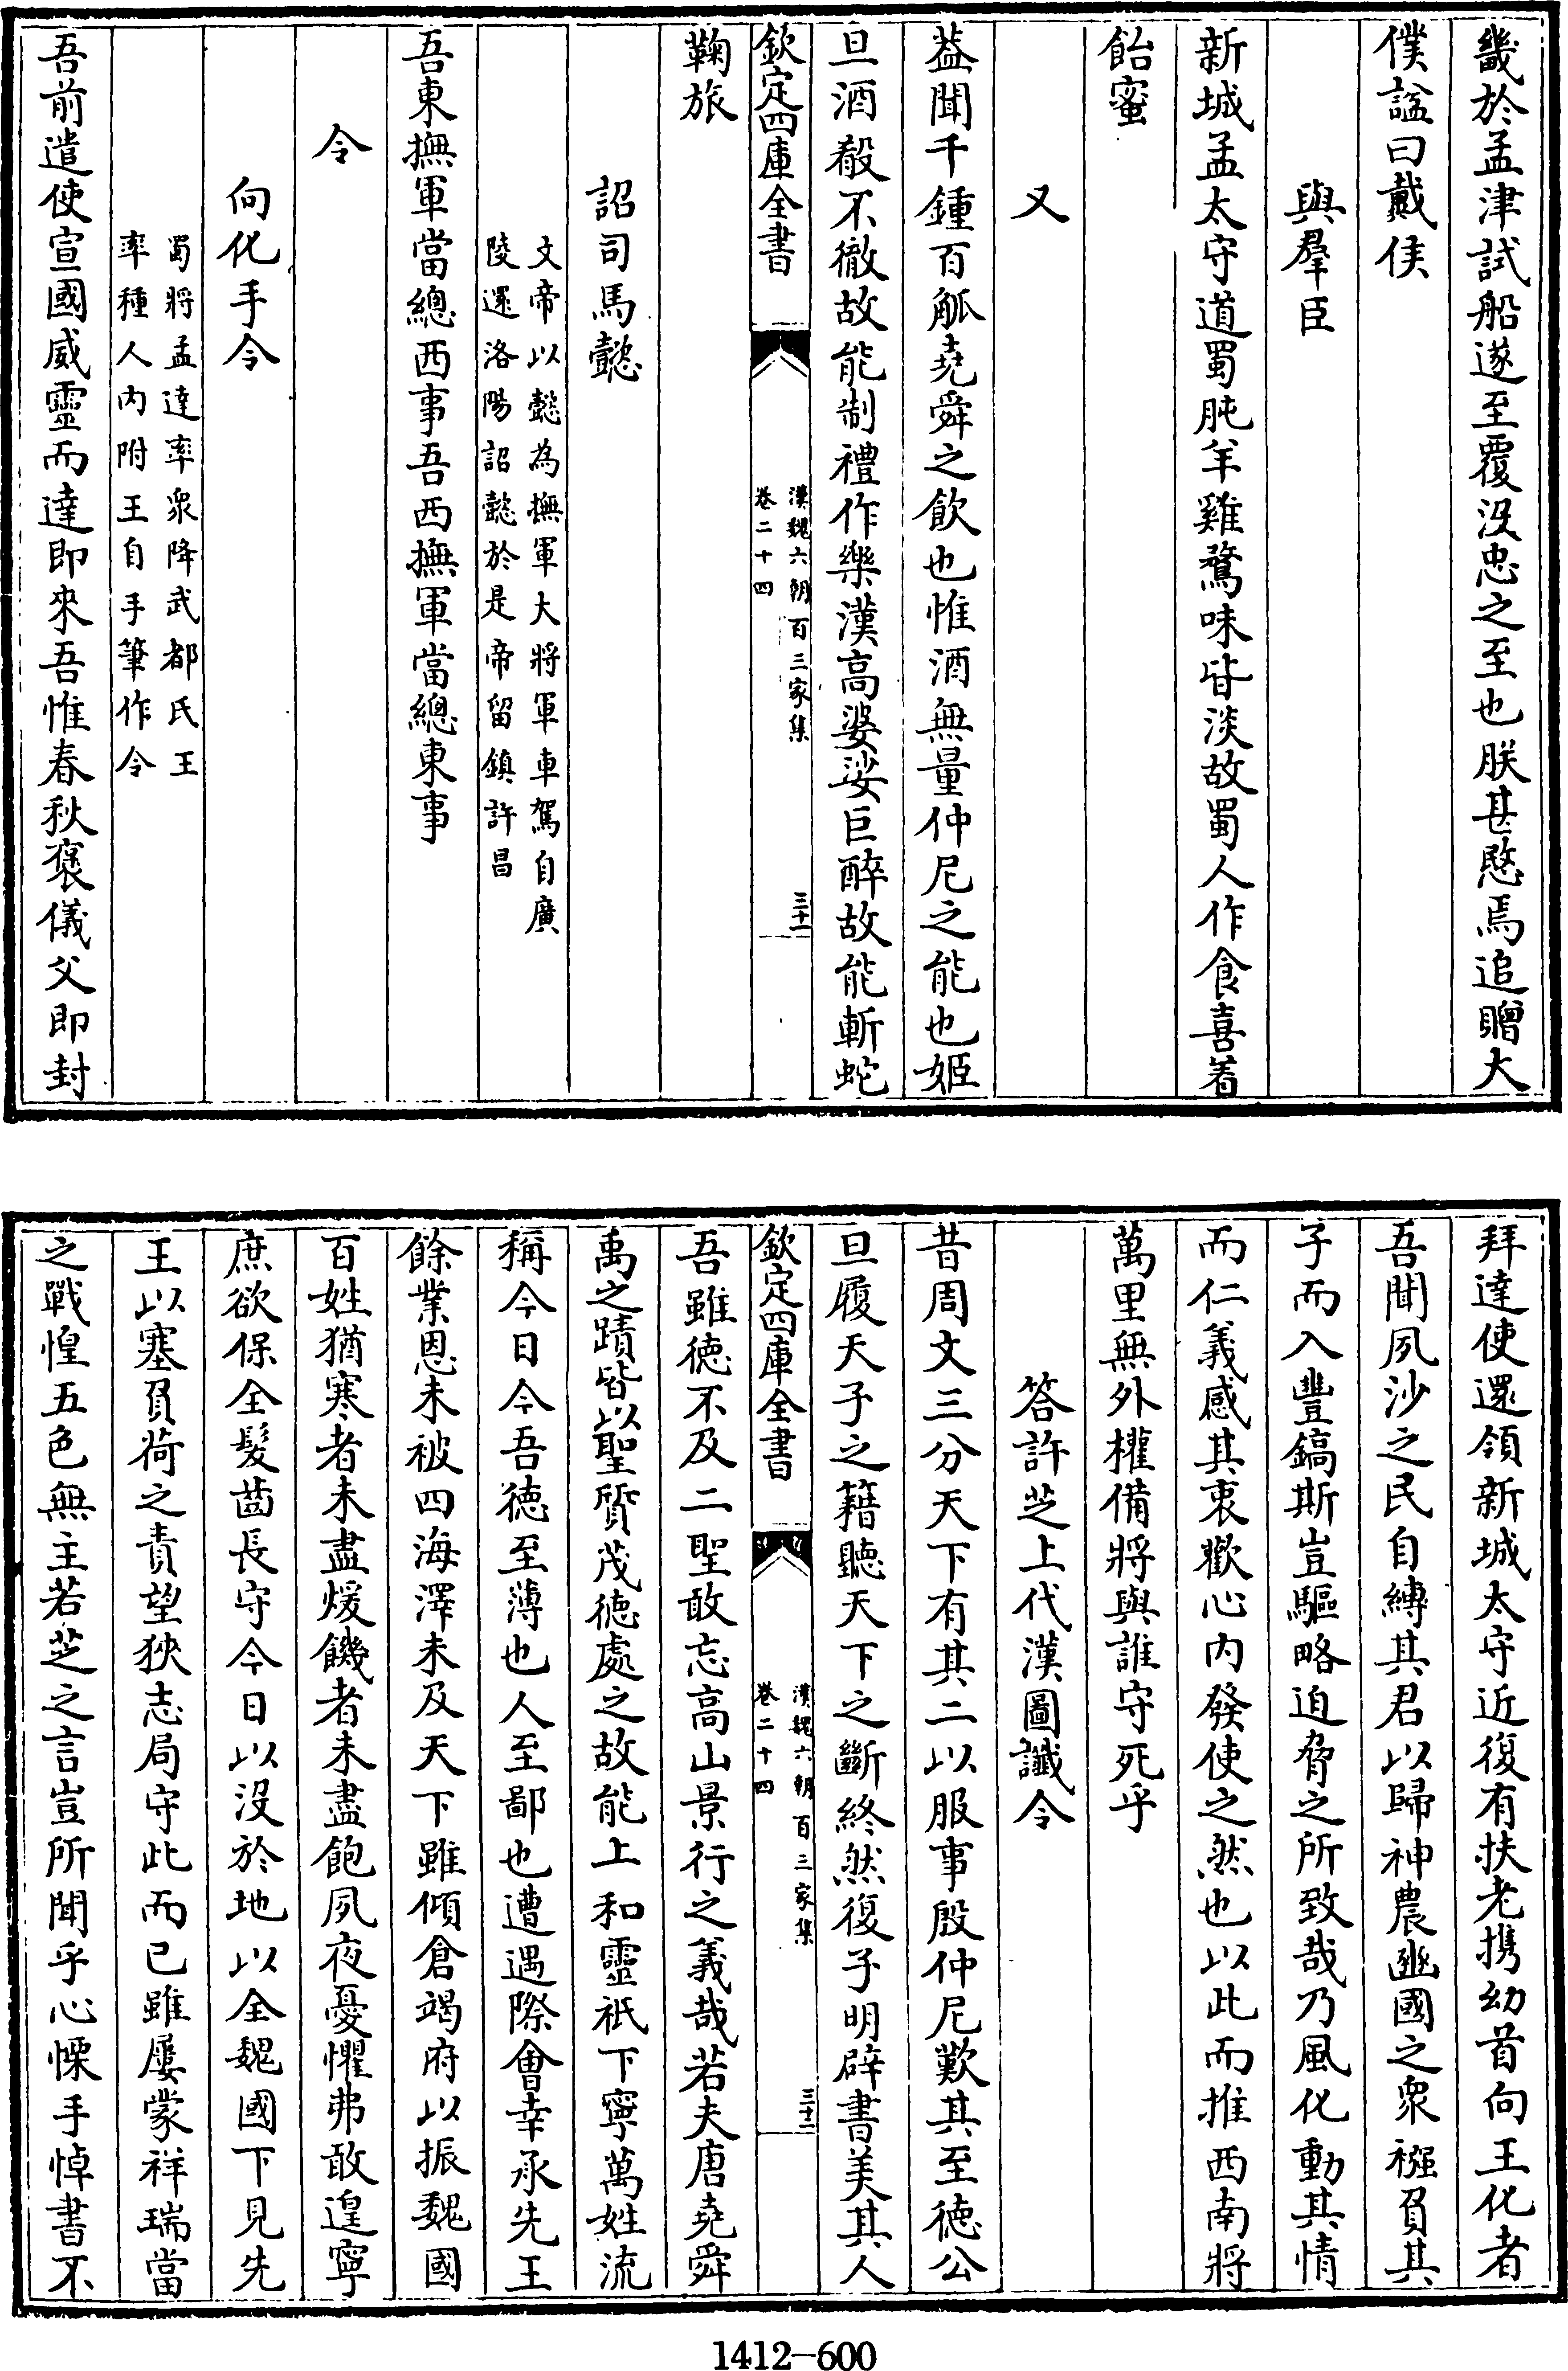 畿於孟津試船遂至覆沒忠之至也朕甚愍焉追贈大
僕諡曰戴侯
與羣臣
新城孟太守道蜀肫羊雞鶩味皆淡故蜀人作食喜着
飴蜜
又
葢聞千鍾百觚堯舜之飲也惟酒無量仲尼之能也姬
旦酒殽不徹故能制禮作樂漢高婆娑巨醉故能斬蛇
欽定四庫全書
漢魏六朝百三家集
卷二十四
三十一
鞠旅
詔司馬懿
文帝以懿為撫軍大將軍車駕自廣
陵還洛陽詔懿於是帝留鎮許昌
吾東撫軍當總西事吾西撫軍當總東事
令
向化手令
蜀將孟達率衆降武都氏王
率種人内附王自手筆作令
吾前遣使宣國威靈而達即來吾惟春秋褒儀父即封
拜達使還領新城太守近復有扶老携幼首向王化者
吾聞夙沙之民自縛其君以歸神農豳國之衆襁負其
子而入豐鎬斯豈驅略迫脅之所致哉乃風化動其情
而仁義感其衷歡心内發使之然也以此而推西南將
萬里無外權備將與誰守死乎
答許芝上代漢圖讖令
昔周文三分天下有其二以服事殷仲尼歎其至德公
旦履天子之籍聽天下之斷終然復子明辟書美其人
欽定四庫全書
漢魏六朝百三家集
卷二十四
三十二
吾雖德不及二聖敢忘高山景行之義哉若夫唐堯舜
禹之蹟皆以聖質茂德處之故能上和靈祇下寧萬姓流
稱今日今吾德至薄也人至鄙也遭遇際會幸承先王
餘業恩未被四海澤未及天下雖傾倉竭府以振魏國
百姓猶寒者未盡煖饑者未盡飽夙夜憂懼弗敢遑寧
庶欲保全髮齒長守今日以沒於地以全魏國下見先
王以塞負荷之責望狹志局守此而已雖屢蒙祥瑞當
之戰惶五色無主若芝之言豈所聞乎心慄手悼書不
1412-600